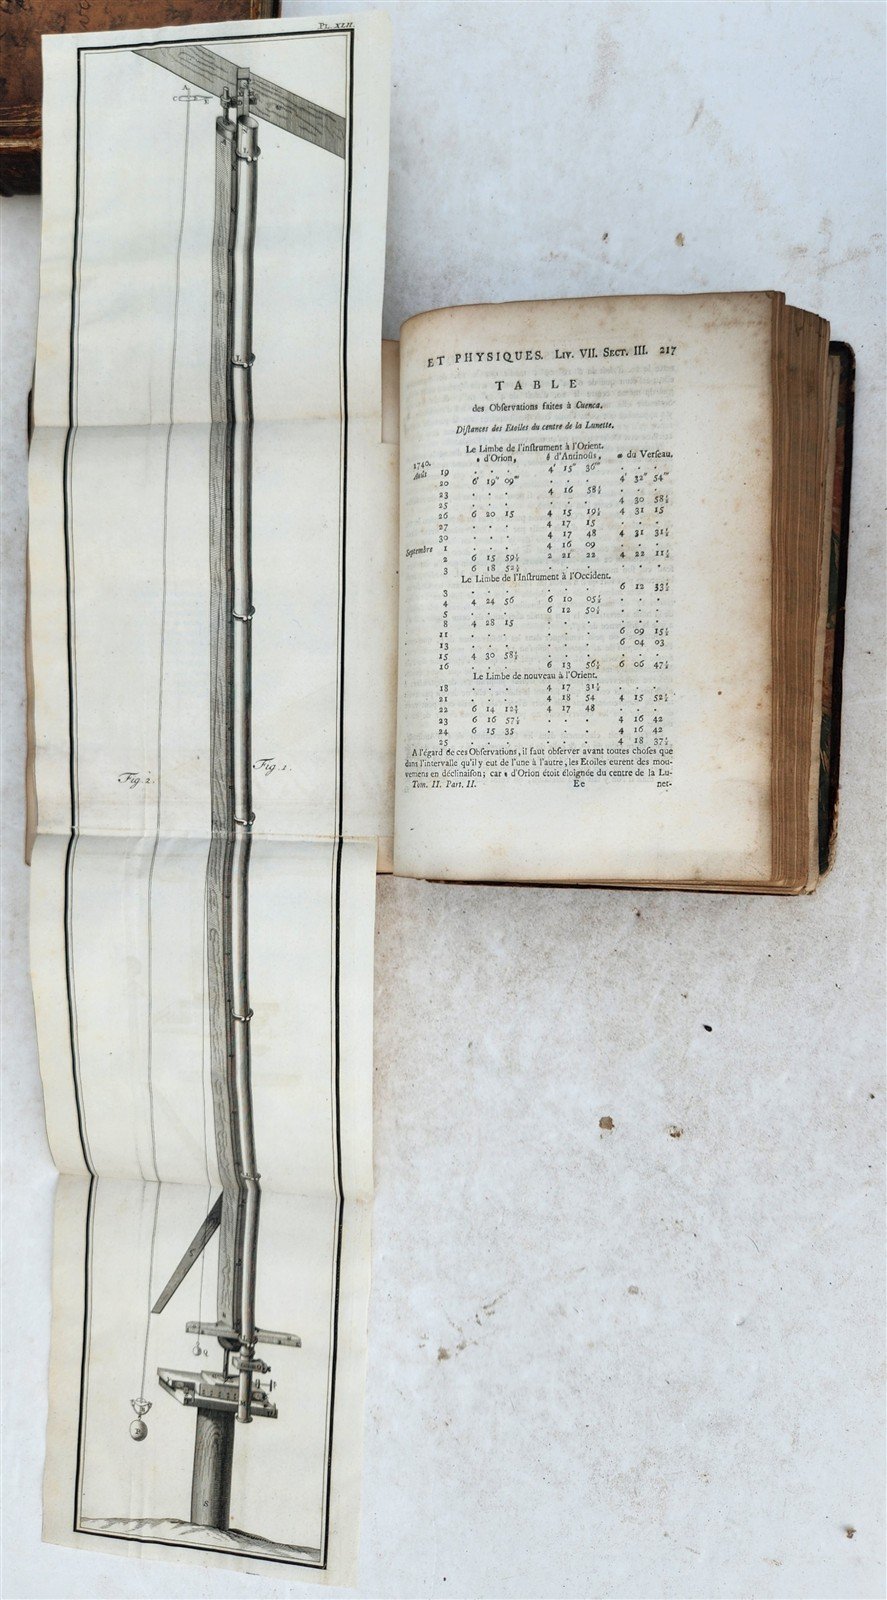 PL. XLII.
Fig. 2.
Fig. 1.
ET PHYSIQUES. LIV. VII. SECT. III. 217
TABLE
des Obſervations faites à Cuenca.
Diſtances des Etoiles du centre de la Lunette.
Le Limbe de l'inſtrument à l'Orient.
1740. ε d'Orion, θ d'Antinoüs, α du Verſeau.
Août 19 . . . 4' 15'' 36''' . . .
20 6' 19'' 09''' . . . 4' 32'' 54'''
23 . . . 4 16 58½ . . .
25 . . . . . . 4 30 58½
26 6 20 15 4 15 19½ 4 31 15
27 . . . 4 17 15 . . .
30 . . . 4 17 48 4 31 31½
Septembre 1 . . . 4 16 09 . . .
2 6 15 59½ 2 21 22 4 22 11½
3 6 18 52½ . . . . . .
Le Limbe de l'Inſtrument à l'Occident.
3 . . . . . . 6 12 33½
4 4 24 56 6 10 05½ . . .
5 . . . 6 12 50½ . . .
8 4 28 15 . . . . . .
11 . . . . . . 6 09 15½
13 . . . . . . 6 04 03
15 4 30 58½ . . . . . .
16 . . . 6 13 56½ 6 06 47½
Le Limbe de nouveau à l'Orient.
18 . . . 4 17 31½ . . .
21 . . . 4 18 54 4 15 52½
22 6 14 12¾ 4 17 48 . . .
23 6 16 57½ . . . 4 16 42
24 6 15 35 . . . 4 16 42
25 . . . . . . 4 18 37½
A l'égard de ces Obſervations, il faut obſerver avant toutes choſes que
dans l'intervalle qu'il y eut de l'une à l'autre, les Etoiles eurent des mou-
vemens en déclinaiſon; car ε d'Orion étoit éloignée du centre de la Lu-
Tom. II. Part. II. Ee net-